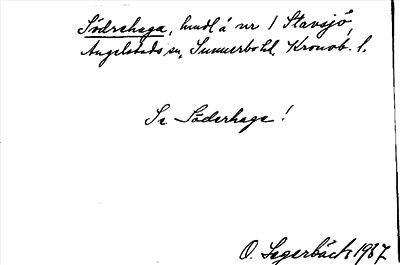 Södrehaga, hmdl å nr 1 Stavsjö,
Angelstads sn, Sunnerbo hd, Kronob. l.
Se Söderhaga!
O. Segerbäck 1937